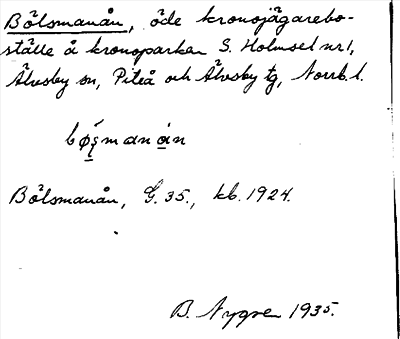 Bölsmanån, öde kronojägarebo-
ställe å kronoparken S. Holmsel nr 1,
Älvsby sn, Piteå och Älvsby tg, Norrb. l.
bø̄ʂmanån
Bölsmanån, G. 35., kb. 1924.
B. Nygren 1935.